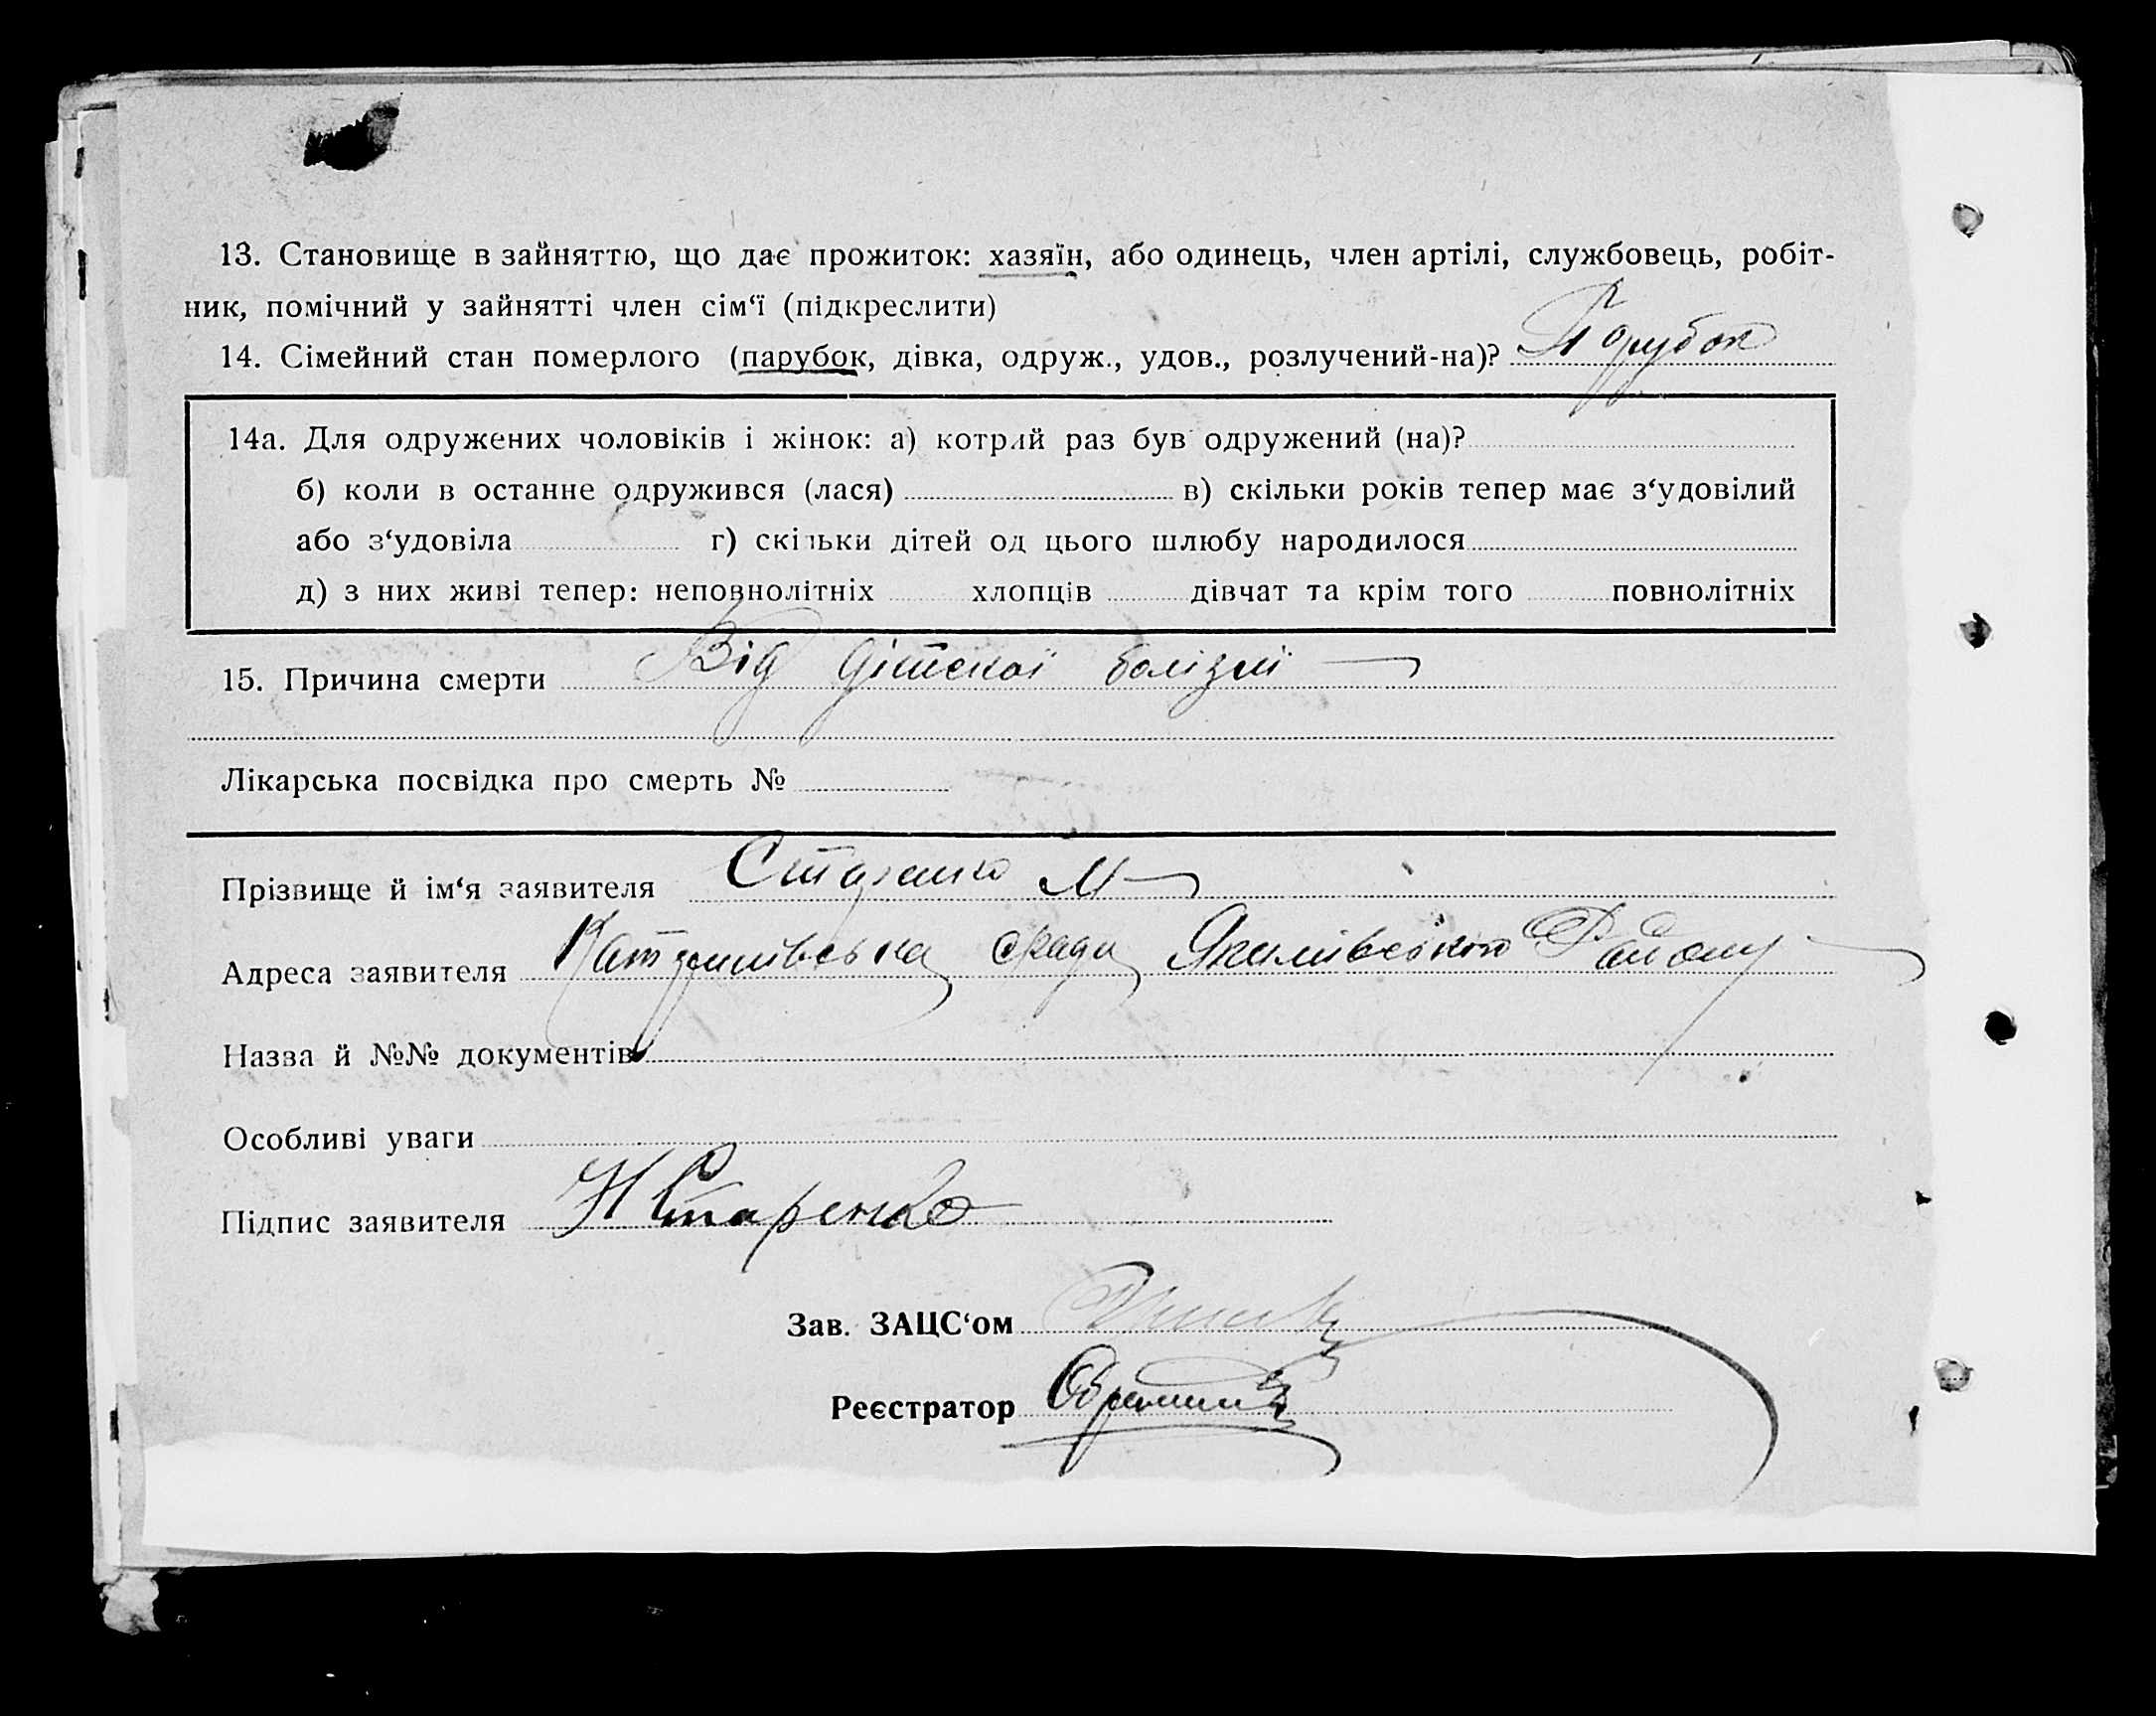 13. Становище в зайняттю, що дає прожиток: хазяїн, або одинець, член артілі, службовець, робіт-
ник, помічний у зайнятті член сім‘ї (підкреслити)
14. Сімейний стан померлого (парубок, дівка, одруж., удов., розлучений-на)? Парубок
14а. Для одружених чоловіків і жінок: а) котрий раз був одружений (на)?
б) коли в останне одружився (лася) в) скільки років тепер має з‘удовілий
або з‘удовіла г) скільки дітей од цього шлюбу народилося
д) з них живі тепер: неповнолітніх хлопців дівчат та крім того повнолітніх
15. Причина смерти Від дітскої болізні
Лікарська посвідка про смерть №
Прізвище й ім‘я заявителя Старенко М
Адреса заявителя срада Якимівського Району
Назва й №№ документів
Особливі уваги
Підпис заявителя Старенко
Зав. ЗАЦС‘ом
Реєстратор